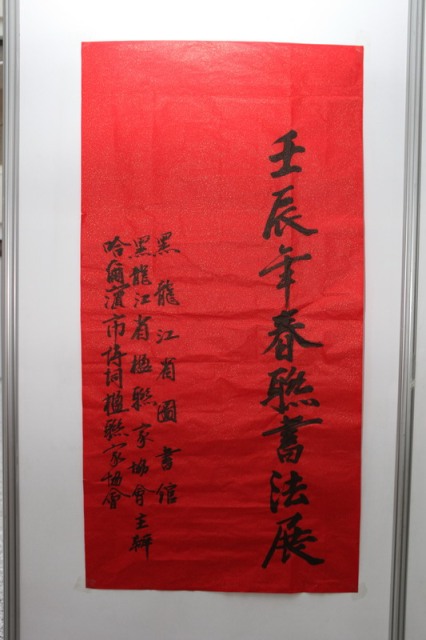 壬辰年春聯書法展
黑龍江省圖書館
黑龍江省楹聯家協會主辦
哈爾濱市詩詞楹聯家協會